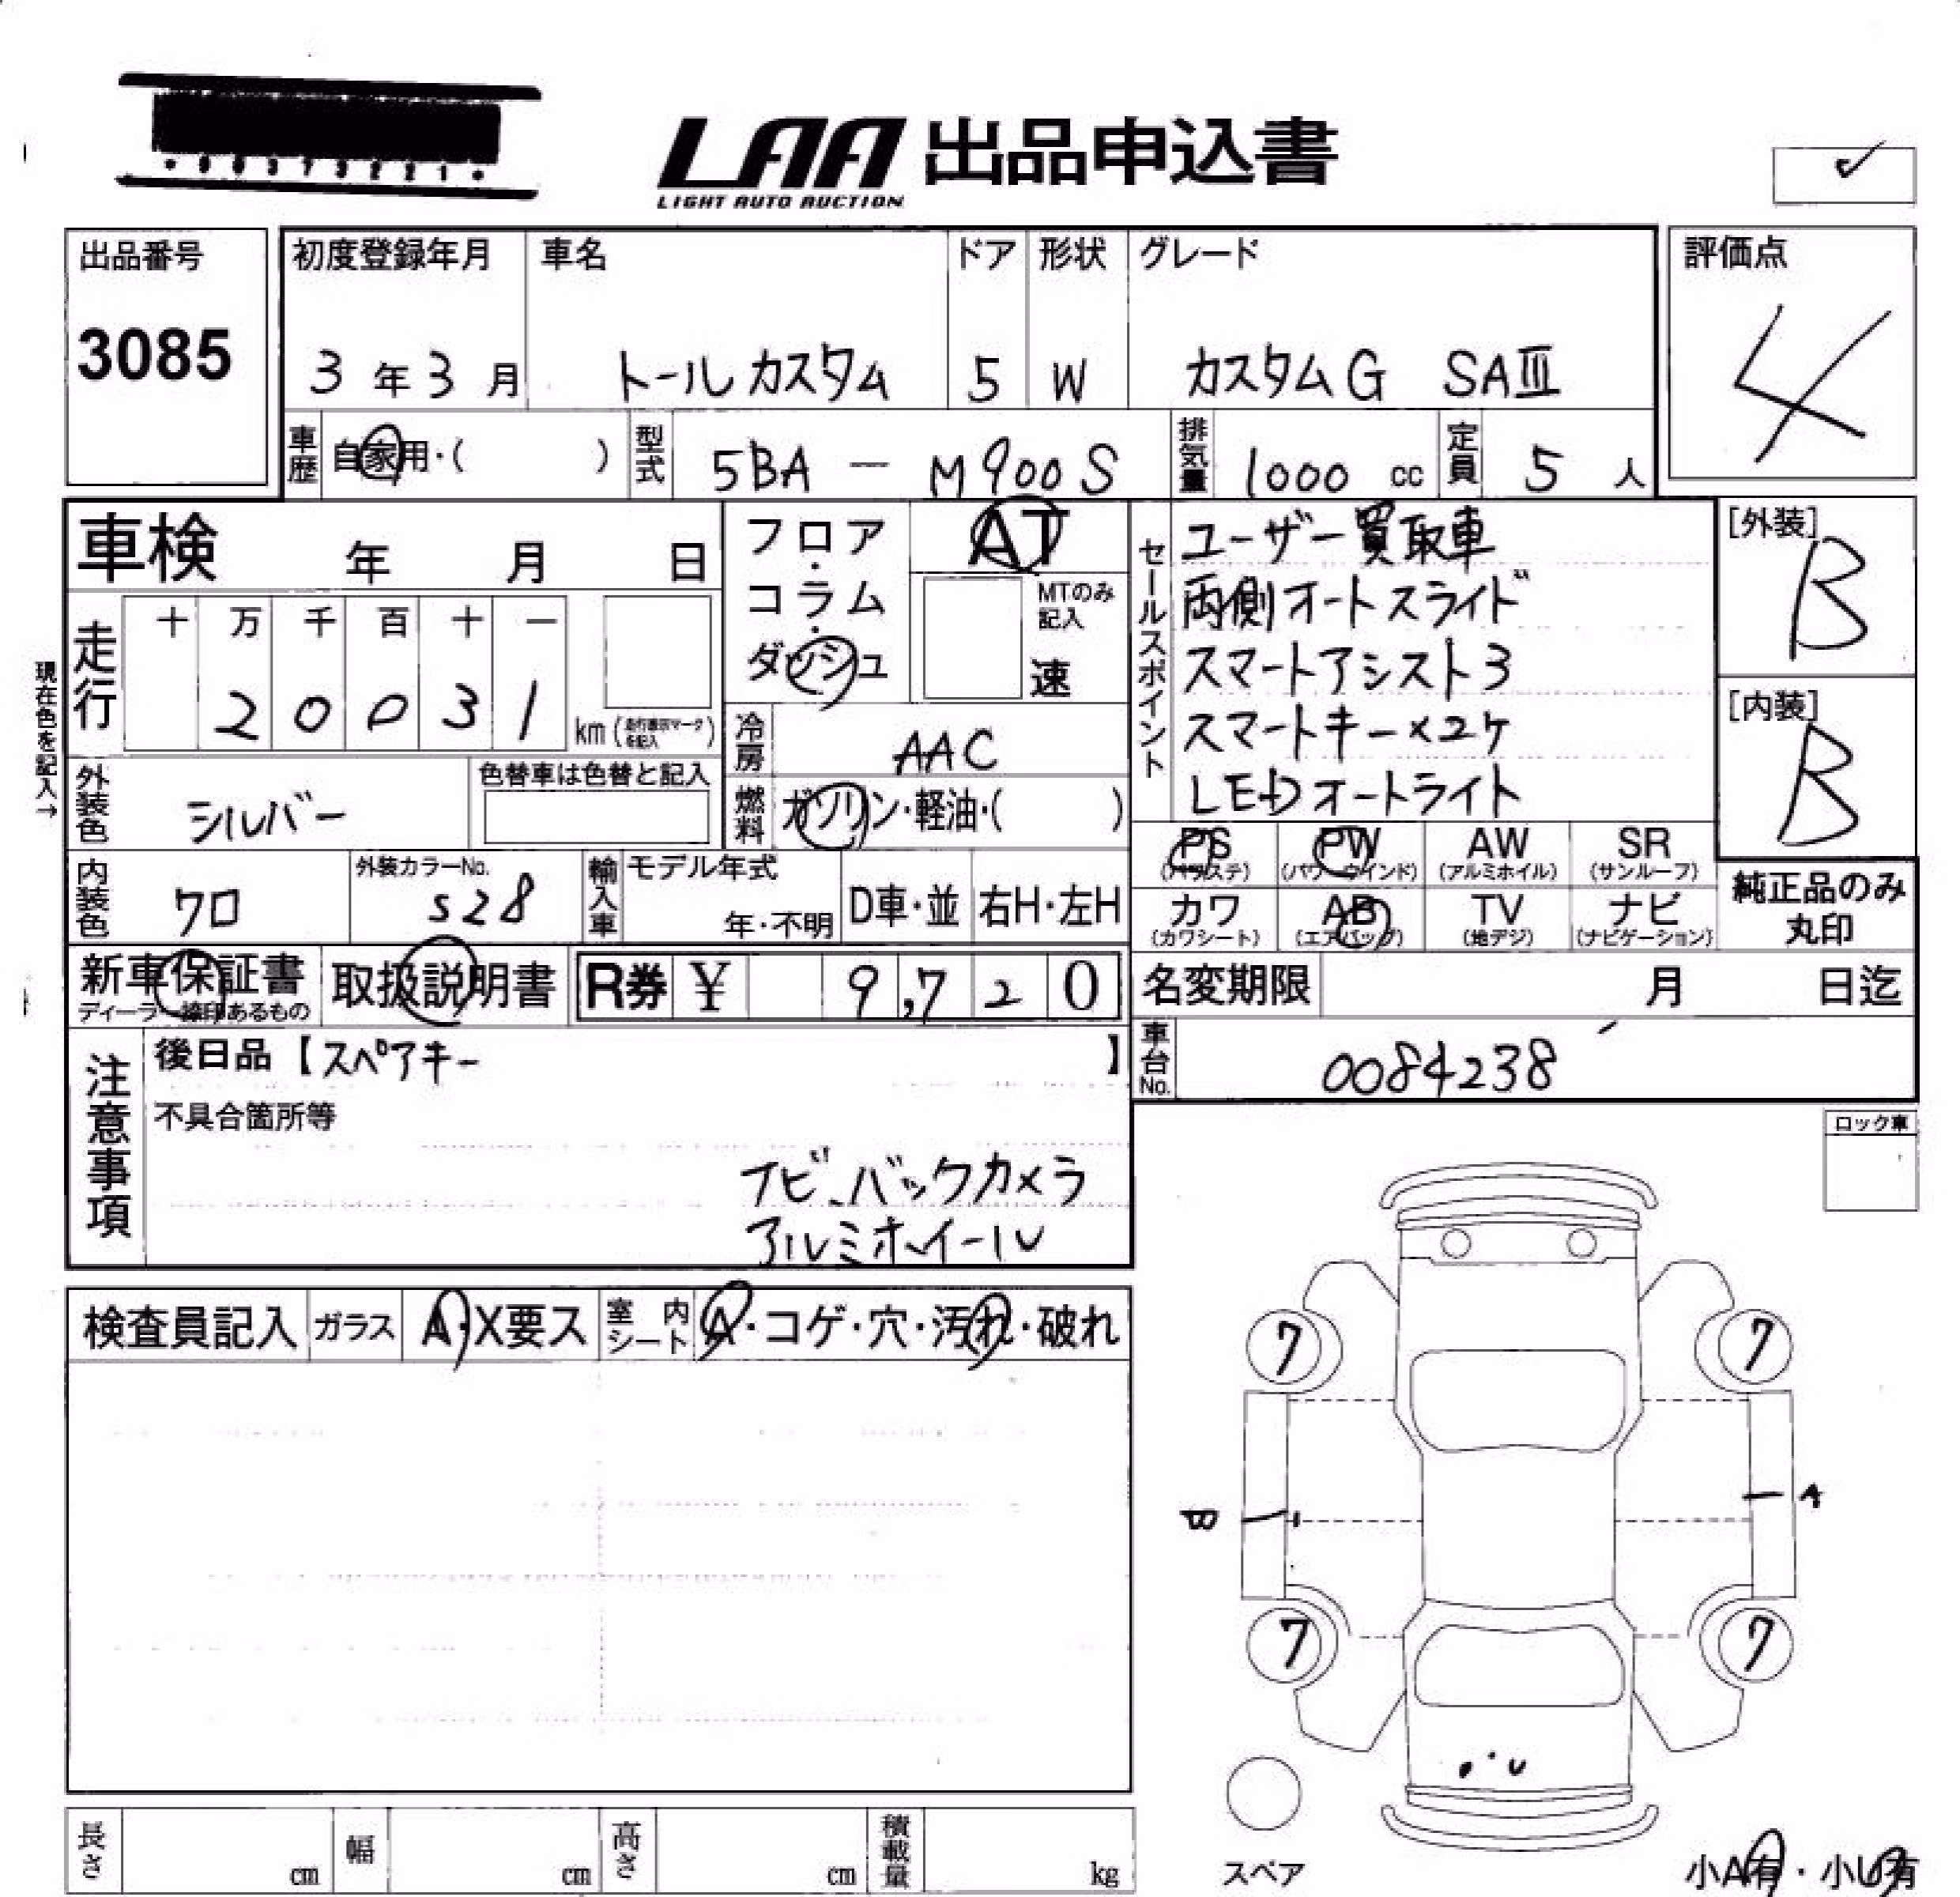 LAA 出品申込書
LIGHT AUTO AUCTION
出品番号
3085
初度登録年月 車名 ドア 形状 グレード 評価点
3年3月 トールカスタム 5 W カスタムG SAⅢ 4
車歴 自家用・( ) 型式 5BA - M900S 排気量 1000 cc 定員 5 人
車検 年 月 日
フロア・コラム・ダッシュ
AT
MTのみ記入
速
セールスポイント
ユーザー買取車
両側オートスライド
スマートアシスト3
スマートキー×2ケ
LEDオートライト
[外装] B
[内装] B
現在色を記入→
走行 十 万 千 百 十 一
2 0 0 3 1 km (走行表示マークを記入)
冷房 AAC
外装色 シルバー 色替車は色替と記入
燃料 ガソリン・軽油・( )
PS (パワステ) PW (パワーウインド) AW (アルミホイル) SR (サンルーフ)
カワ (カワシート) AB (エアバッグ) TV (地デジ) ナビ (ナビゲーション)
純正品のみ丸印
内装色 クロ 外装カラーNo. S28 輸入車 モデル年式 年・不明 D車・並 右H・左H
新車保証書 ディーラー捺印あるもの 取扱説明書 R券 ¥ 9,720
名変期限 月 日迄
車台No. 0084238
注意事項
後日品【スペアキー 】
不具合箇所等
ナビ、バックカメラ
アルミホイール
ロック車
検査員記入 ガラス A・X要ス 室内シート A・コゲ・穴・汚れ・破れ
7 7
B A
7 7
・'U
スペア
長さ cm 幅 cm 高さ cm 積載量 kg
小A有・小U有